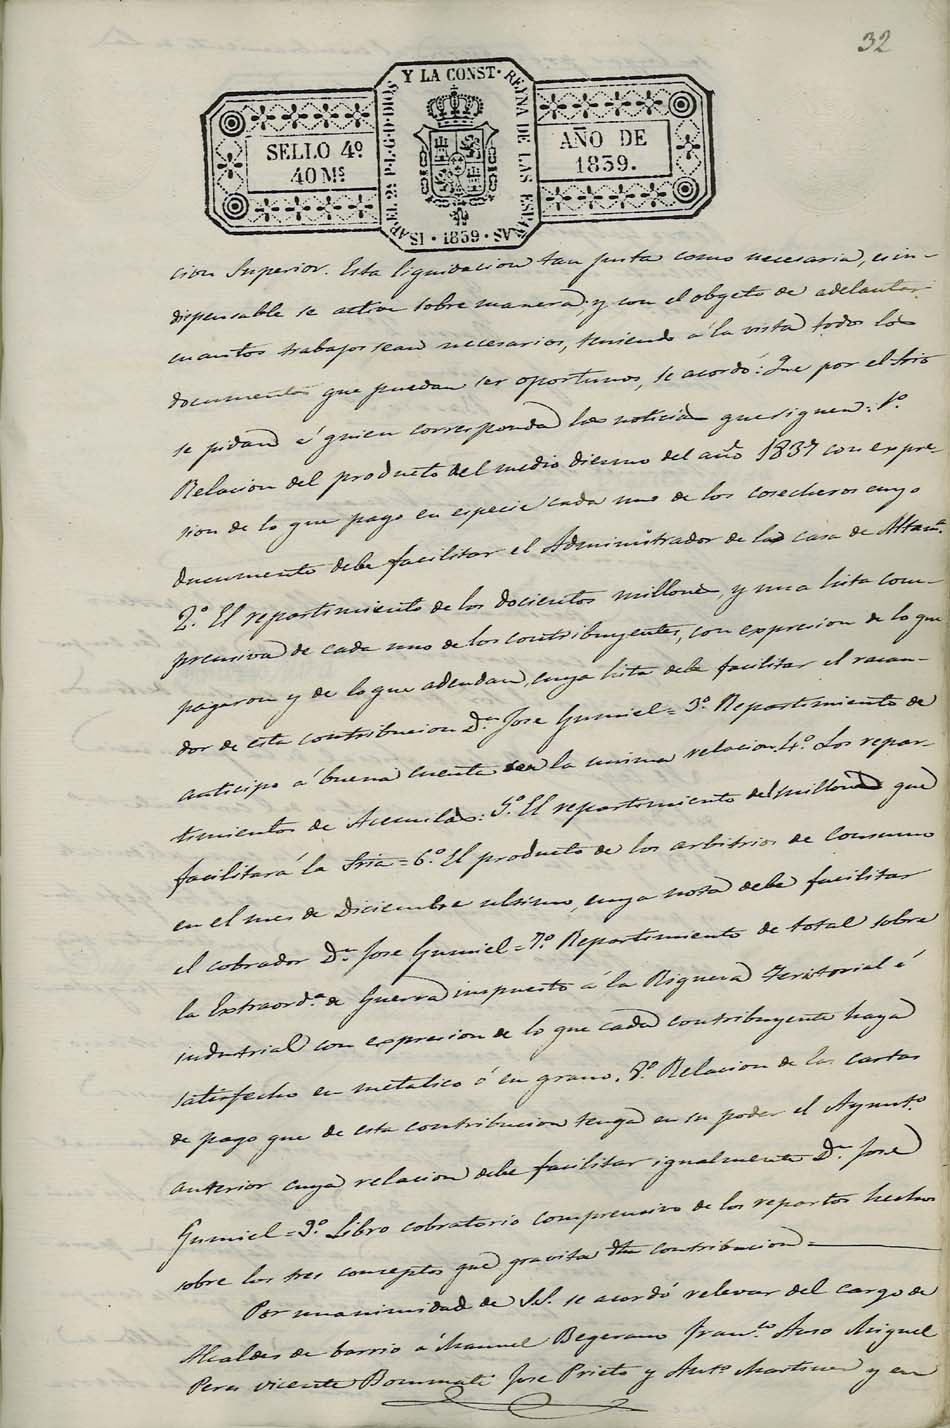 32
SELLO 4º
40 Mˢ
ISABEL 2ª P.L.G.D.DIOS Y LA CONST. REYNA DE LAS ESPAÑAS
1839
AÑO DE
1839.
cion Superior. Esta liquidacion tan justa como necesaria, es in-
dispensable se active sobre manera; y con el obgeto de adelantar
cuantos trabajos sean necesarios, teniendo á la vista todos los
documentos que puedan ser oportunos, se acordó: Que por el Srio
se pidan á quien corresponda las noticias que siguen: 1º
Relacion del producto del medio diezmo del año 1837 con expre-
sion de lo que pago en especie cada uno de los cosecheros cuyo
documento debe facilitar el Administrador de la casa de Altamª
2º El repartimiento de los docientos millones, y una lista com-
prensiva de cada uno de los contribuyentes, con expresion de lo que
pagaron y de lo que adeudan, cuya lista debe facilitar el recau-
dor de esta contribucion Dⁿ Jose Gumiel = 3º Repartimiento de
anticipo á buena cuenta la misma relacion. 4º Los repar-
timientos de Acemilas: 5º El repartimiento del millones que
facilitará la Sria = 6º El producto de los arbitrios de consumo
en el mes de Diciembre ultimo, cuya nota debe facilitar
el cobrador Dⁿ Jose Gumiel = 7º Repartimiento de total sobre
la Extraordª de Guerra impuesto á la Riqueza Territorial é
industrial con expresion de lo que cada contribuyente haya
satisfecho en metalico ó en grano. 8º Relacion de las cartas
de pago que de esta contribucion tenga en su poder el Ayuntº
anterior cuya relacion debe facilitar igualmente Dⁿ Jose
Gumiel = 9º Libro cobratorio comprensivo de los repartos hechos
sobre los tres conceptos que gravita dha contribucion =
Por unanimidad de S.S. se acordó relevar del cargo de
Alcaldes de barrio á Manuel Begerano Franᶜᵒ Miguel
Peres Vicente Jose Prieto y Antº Martinez y en